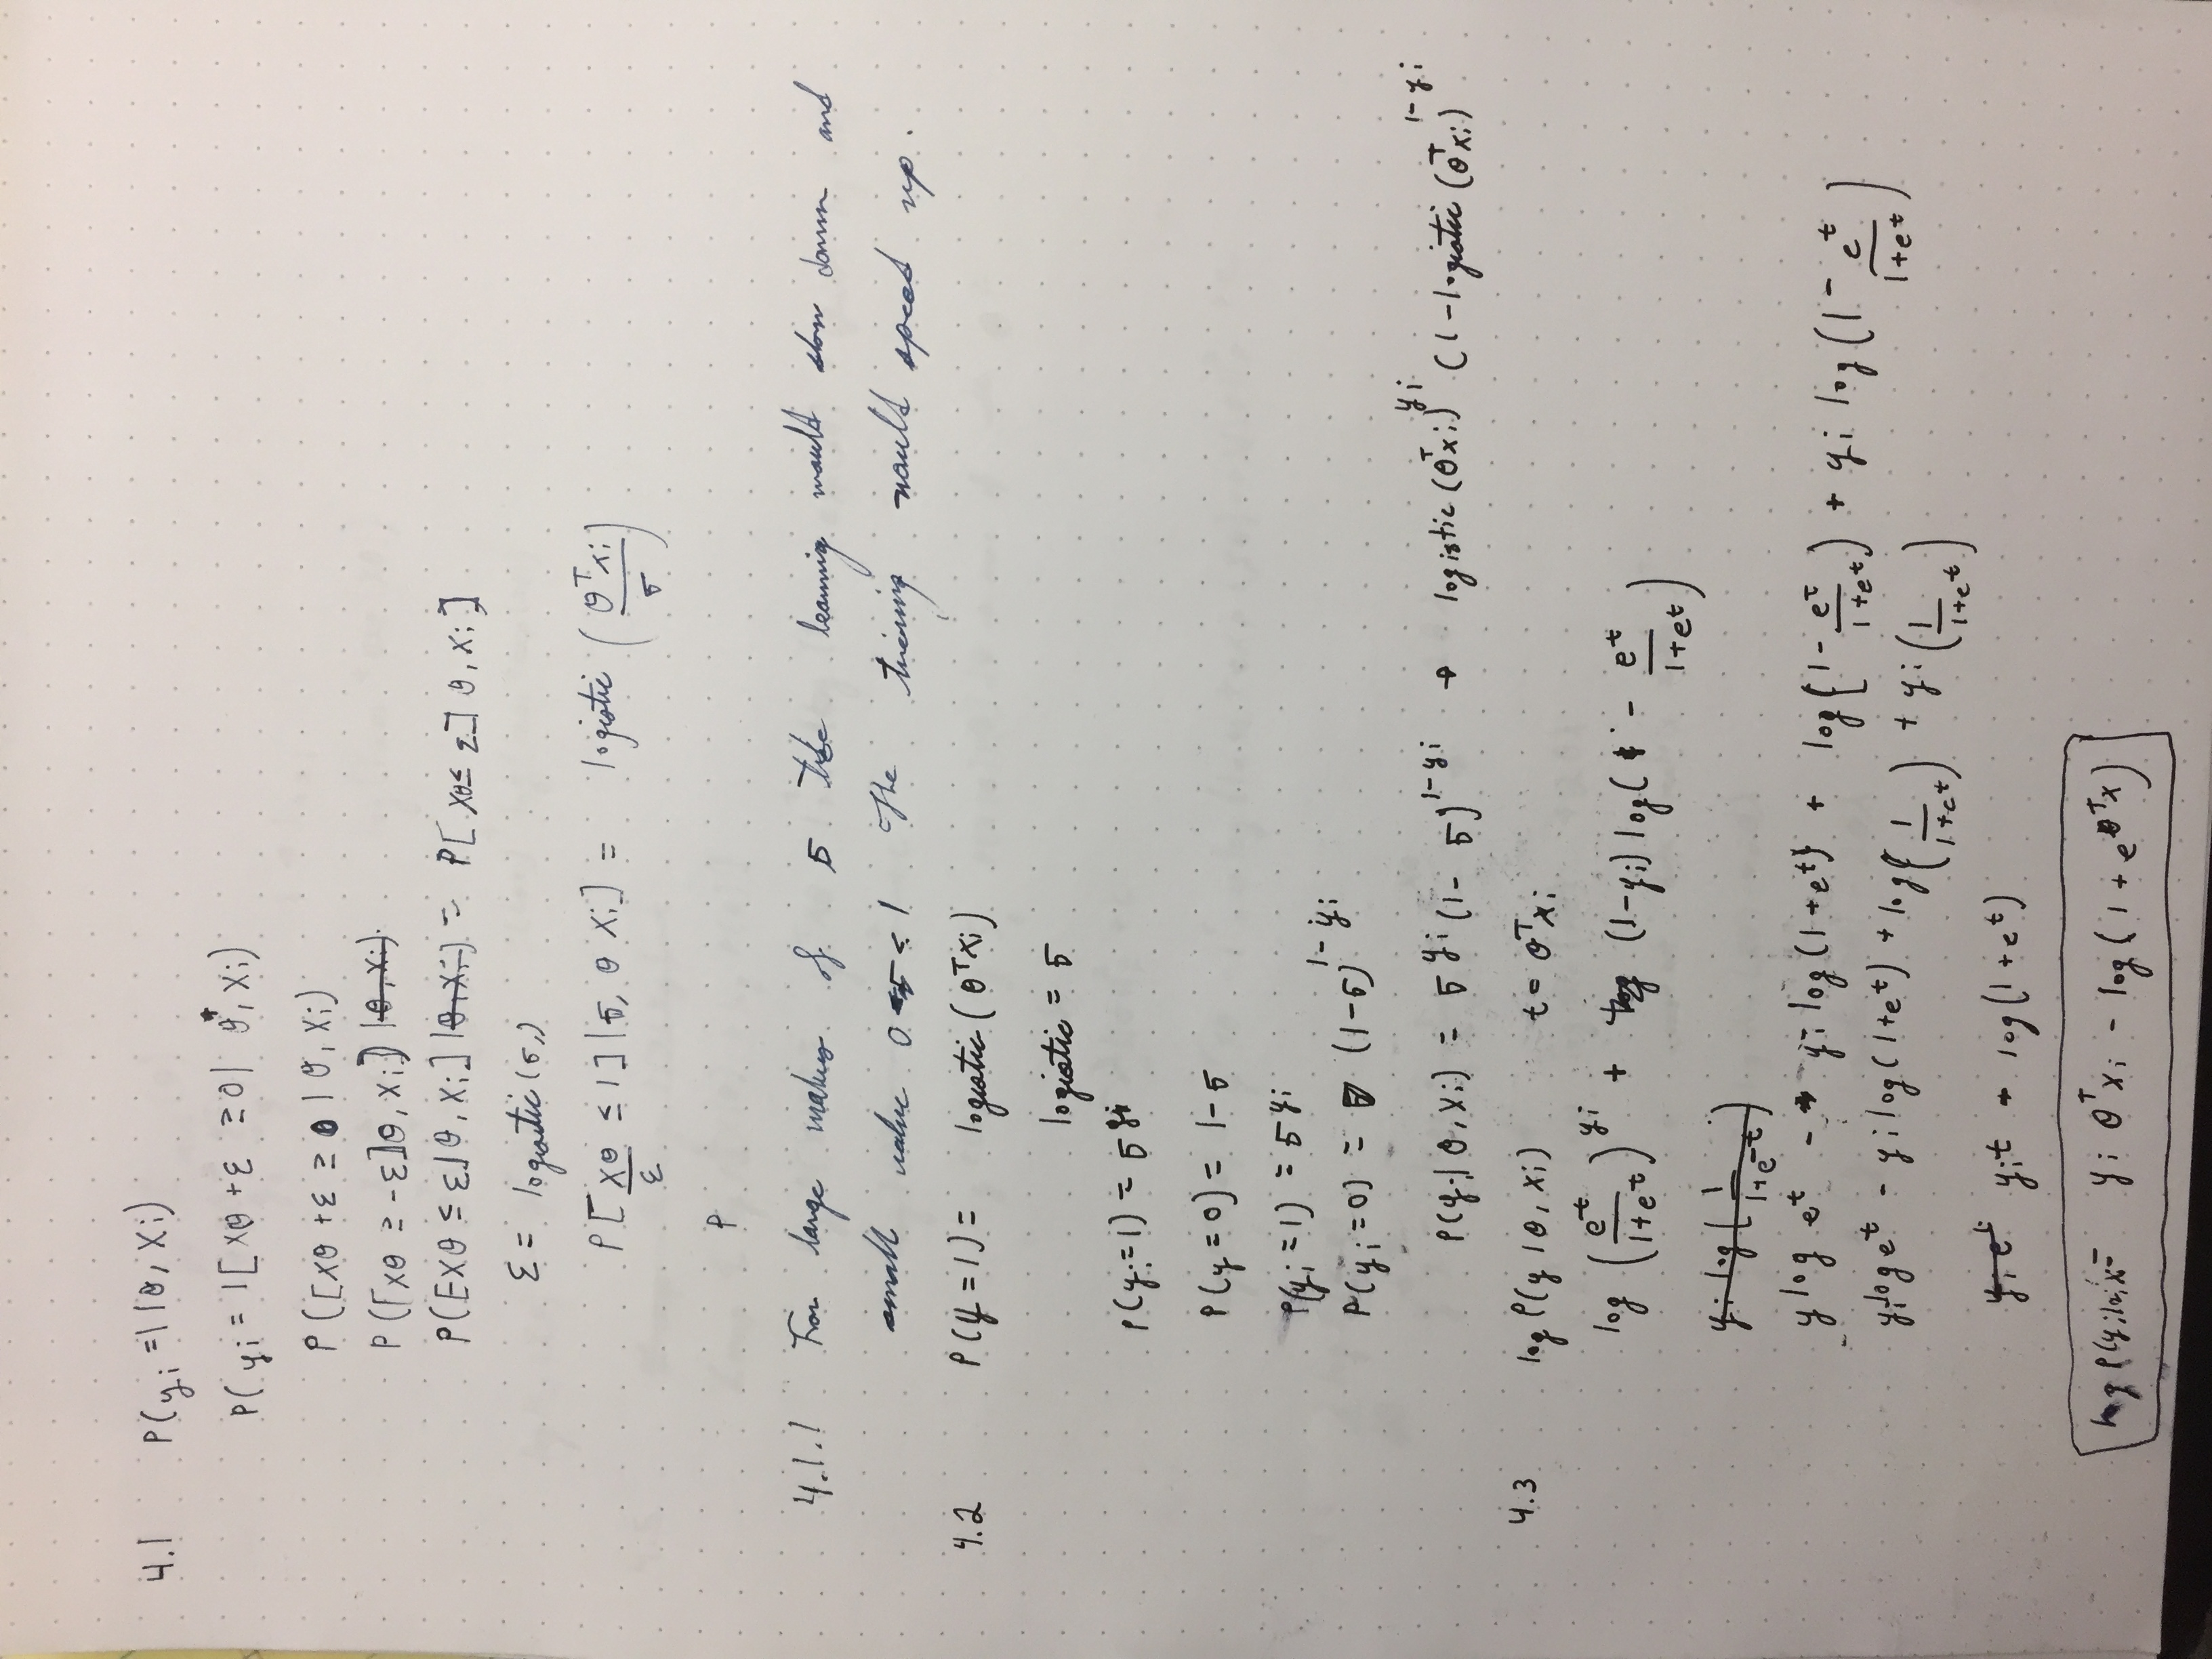 4.1 P(yi =1 | θ, Xi)
P(yi = 1[xθ + ε ≥ 0 | θ, Xi)
P([xθ + ε ≥ 0 | θ, Xi)
P([xθ ≥ -ε]θ, Xi]) |θ, Xi)
P([xθ ≤ ε]θ, Xi] |θ, Xi) = P[xθ ≤ ε] θ, Xi]
ε = logistic(σ,)
P[xθ/ε ≤ 1] | σ, θ Xi] = logistic (θᵀxi/σ)
P
4.1.1 For large values of σ the learning would slow down and
small value 0 < σ < 1 the would speed up.
4.2 P(y = 1) = logistic (θᵀxi)
logistic = σ
P(yi = 1) = σ^yi
P(y = 0) = 1 - σ
P(yi = 1) = σ^yi
P(yi = 0) = (1-σ)^1-yi
P(yi | θ, Xi) = σ^yi (1 - σ)^1-yi → logistic (θᵀxi)^yi (1 - logistic (θᵀxi)^1-yi
4.3 log P(y | θ, Xi) t = θᵀxi
log (e^t/1+e^t)^yi + log (1-yi) log( 1 - e^t/1+e^t)
yi log(1/1+e^-t)
y log e^t - yi log(1+e^t) + log(1 - e^t/1+e^t) + yi log(1 - e^t/1+e^t)
yi log e^t - yi log(1+e^t) + log(1/1+e^t) + yi (1/1+e^t)
yi e^t yit - log(1 + e^t)
log P(yi = yi θᵀxi - log(1 + e^θᵀx)